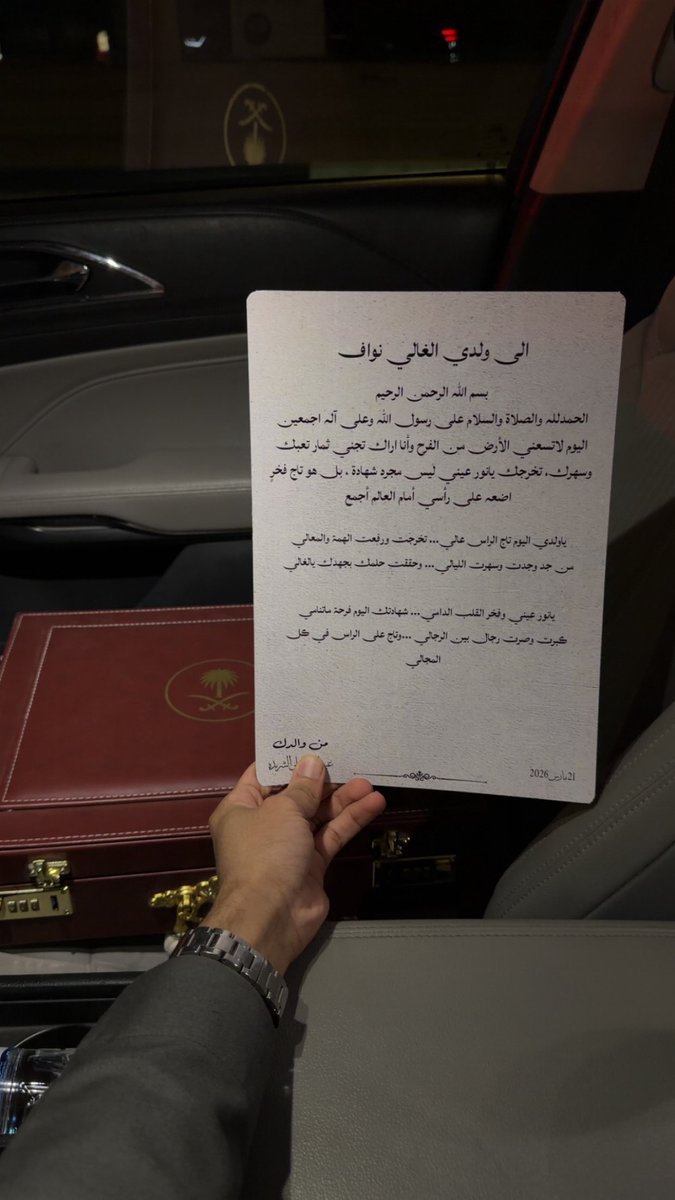 الى ولدي الغالي نواف
بسم الله الرحمن الرحيم
الحمدلله والصلاة والسلام على رسول الله وعلى آله اجمعين
اليوم لاتسعني الأرض من الفرح وأنا اراك تجني ثمار تعبك
وسهرك، تخرجك يانور عيني ليس مجرد شهادة ، بل هو تاج فخرٍ
اضعه على رأسي أمام العالم أجمع
ياولدي اليوم تاج الراس عالي... تخرجت ورفعت الهمة والمعالي
من جد وجدت وسهرت الليالي... وحققت حلمك بجهدك يالغالي
يانور عيني وفخر القلب الدامي... شهادتك اليوم فرحة ماتنامي
كبرت وصرت رجال بين الرجالي ...وتاج على الراس في كل
المجالي
من والدك
الشريده
21مارس2026